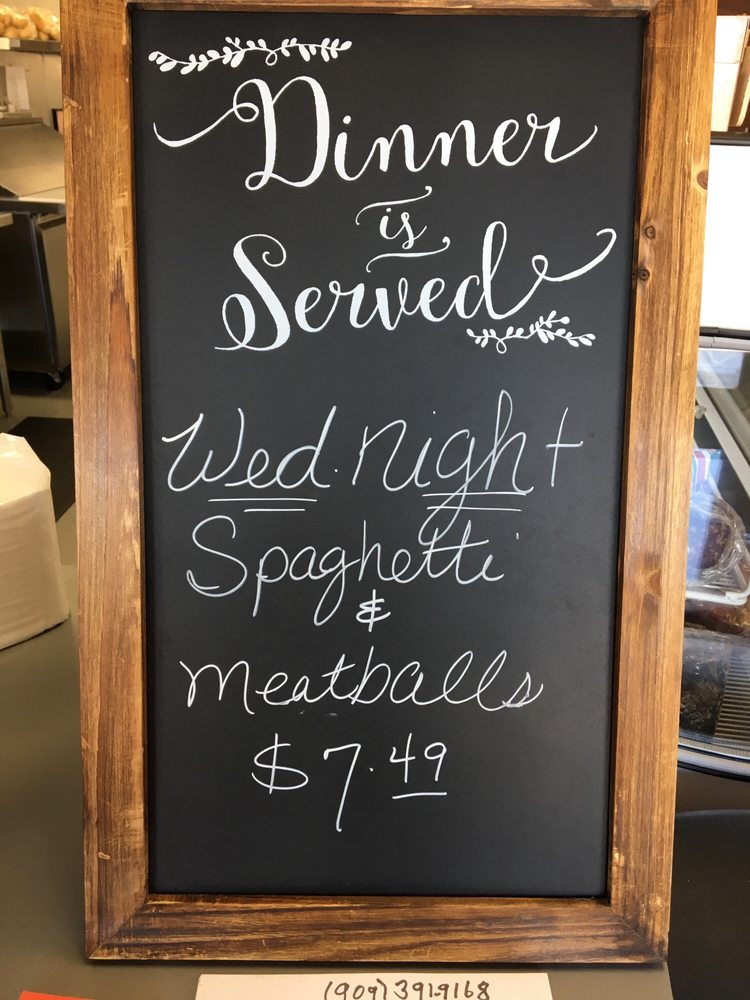 Dinner
is
Served
Wed. night
Spaghetti
&
Meatballs
$7.49
(909) 391-9168